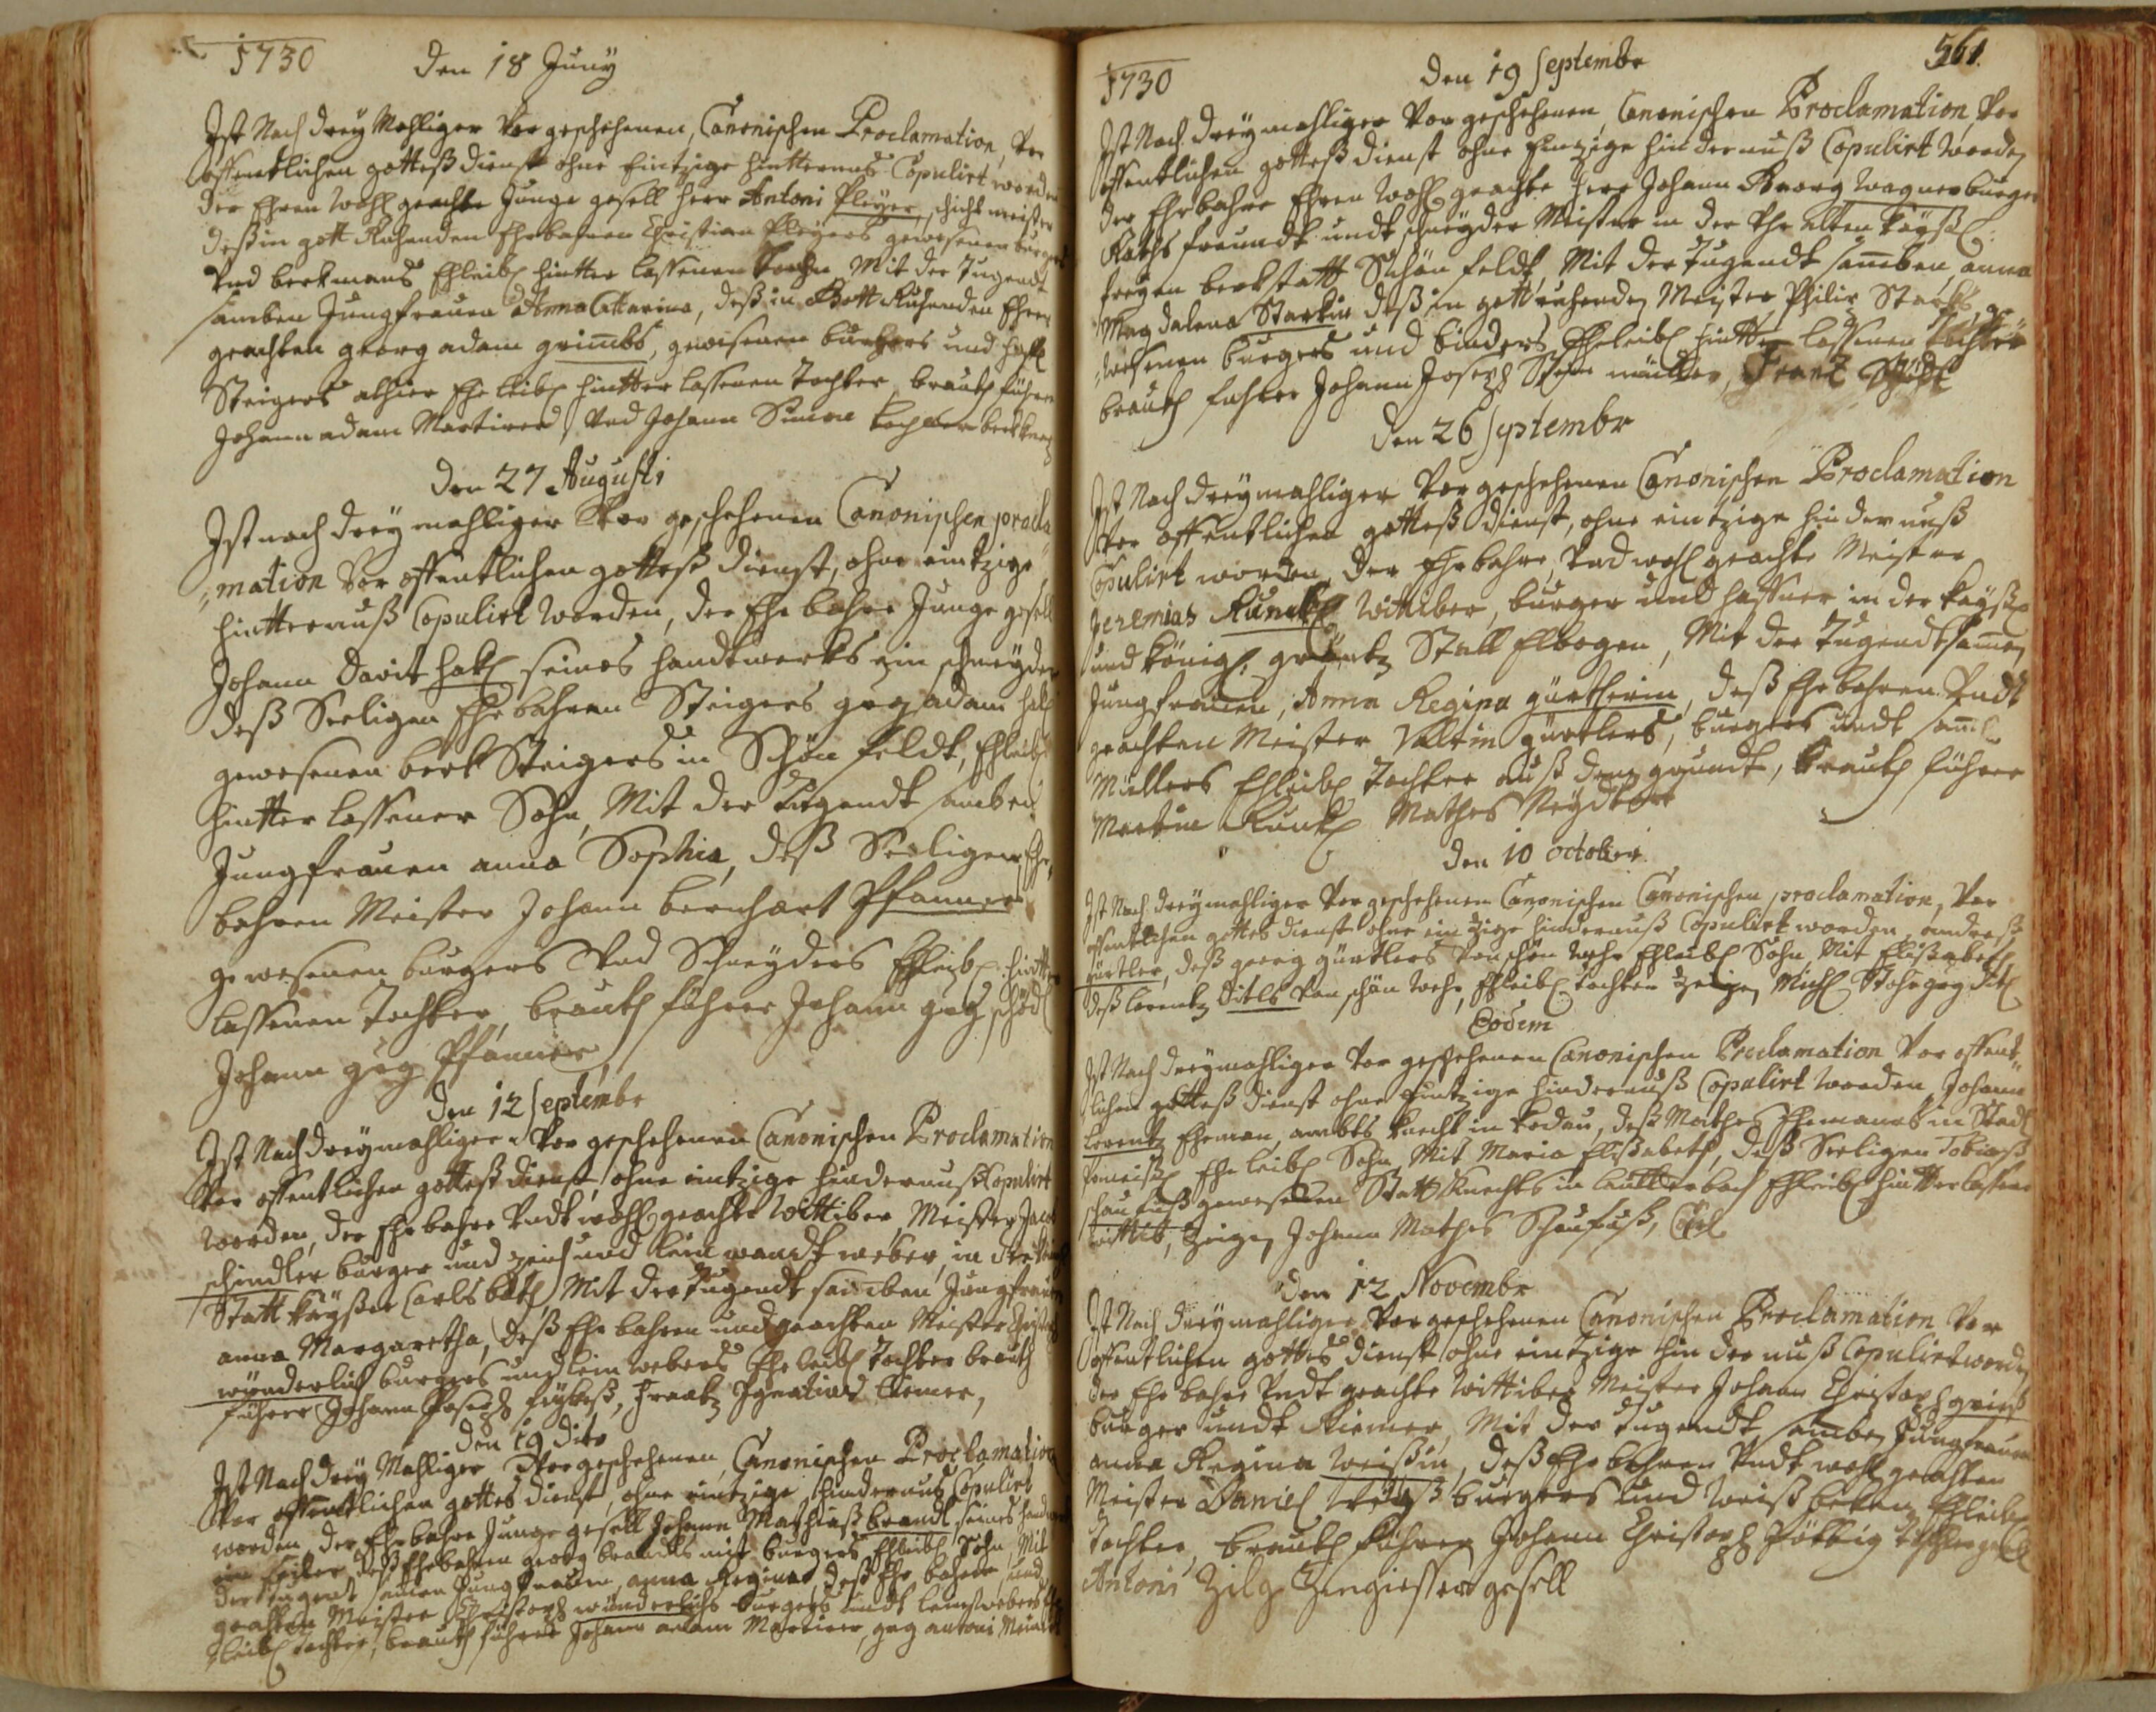 1730 Den 18 Juny
Ist Nach drey Mahliger Vor geschehenen, Canonischen Proclamation, Vor
öffentlichen gotteß dienst ohne Eintzige hintternus Copulirt worden
der Ehren wohl geachte Junge gesell herr Antoni Pleyer, schicht meister
deß in gott Ruhenden Ehrbahren Christian Pleyers gewesenen burgers
Vnd berkmans Ehleibl hintter lassenen Sohn, Mit der Tugendt
samben Jungfrauen Anna Catharina, deß in Gott Ruhenden Ehren
geachten georg adam grimbs, gewesenen burgers und
Steigers alhier Ehe leibl hintter lassenen Tochter, brauth führer
Johann adam Martin Vnd Johann Simon
Den 27 Augusti
Ist nach drey mahliger Vor geschehenen Canonischen procla
mation Vor offentlichen gotteß dienst, ohne eintzige
hintternuß Copulirt worden, der Ehr bahre Junge gesell
Johann Davit hakl seines handtwerks ein schneyder
deß Seeligen Ehrbahren Steigers geog adam hakl
gewesenen berk Steigers in Schön feldt, Ehleibl
hintter lassener Sohn, Mit der Tugendt samben
Jungfrauen anna Sophia, deß Seeligen Ehr
bahren Meister Johann bernhart Pfanners
gewesenen burgers Vnd Schneyders Ehleibl: hintter
lassenen Tochter, brauth führer Johann geog schödl
Johann geog Pfanner,
Den 12 Septembr
Ist Nach dreymahliger Vor geschehenen Canonischen Proclamation
Vor offentlichen gotteß dienst, ohne eintzige hindernuß Copulirt
worden, der Ehrbahre Vndt wohl geachte Wittiber, Meister Jacob
schindler burger und zeich und leinwandt weber, in der
Statt Kayßer Carlsbath, Mit der Tugendt samben Jungfrauen
anna Margaretha, deß Ehr bahren und geachten Meister Christoph
wunderlich burgers und leinwebers Ehe leibl Tochter brauth
führer Johann Joseph, Frantz Ignatius
Den 19 dito
Ist Nach drey Mahliger Vor geschehenen, Canonischen Proclamation
Vor offentlichen gottes dienst, ohne eintzige hindernus Copulirt
worden, der Ehrbahre Junge gesell Johann Mathiaß brandl, seines handtwerks
ein, deß Ehrbahren georg brandls mit burgers Ehleibl Sohn, Mit
der Tugendt samen Jungfrauen, anna Regina, deß Ehr bahren und
geachten Meister Christoph wunderlichs burgers undt leinwebers Eh
leibl Tochter, brauth führer Johann adam Martin, geog antoni
1730 Den 19 Septembr 561.
Ist Nach dreymahliger Vor geschehenen, Canonischen Proclamation, Vor
offentlichen gotteß dienst ohne Eintzige hindernuß Copulirt worden
der Ehrbahre Ehren wohl geachte herr Johann Georg Wagner burger
Raths freundt undt schneyder Meister in der Uhr alten Kayßl:
freyen berkstatt Schönfeldt, Mit der Tugendt samben, anna
Magdalena Starkin deß in gott ruhenden Meister Philip Starks, ge
wesenen burgers und binders Eheleibl hintter lassenen tochter
brauth führer Johann Joseph müller, Frantz
Den 26 Septembr
Ist Nach dreymahliger Vor geschehenen Canonischen Proclamation
Vor offentlichen gotteß dienst, ohne eintzige hindernuß
Copulirt worden, der Ehrbahre, Vnd wohl geachte Meister
Jeremias Runkl Wittiber, burger und haffner in der Kayßl
und Königl: gräntz Statt Elbogen, Mit der Tugendt samen
Jungfrauen, Anna Regina gürtlerin, deß Ehrbahren Vndt
geachten Meister Valtin gürtlers, burgers undt
Müllers Ehleibl Tochter auß dem grundt, brauth führer
Martin Runkl Mathes
Den 10 octobris
Ist Nach dreymahliger Vor geschehenen Canonischen Canonischen proclamation, Vor
offentlichen gottes dienst ohne eintzige hindernuß Copulirt worden, andreaß
gürtler, deß georg gürtlers Von schön wehr Ehleibl Sohn, Mit Elisabeth
deß lorentz Ditls Von schön wehr, Ehleibl tochter Zeigen Michl geog Ditl
Eodem
Ist Nach dreymahliger Vor geschehenen Canonischen Proclamation Vor offent
lichen gotteß dienst ohne Eintzige hindernuß Copulirt worden, Johann
Lorentz Eheman, ambts knecht in kodau, deß Mathes Ehemans in Stadl
Ehe leibl Sohn, Mit Maria Elisabeth, deß Seeligen Tobiaß
schaufuß gewesenen Statt Knechts in Lautterbach Ehleibl hintterlassene
, Zeigen Johann Mathes Schaufuß, Carl
Den 12 Novembr
Ist Nach dreymahliger Vor geschehenen Canonischen Proclamation Vor
offentlichen gottes dienst ohne eintzige hindernuß Copulirt worden
der Ehrbahre Vndt geachte Wittiber Meister Johann Christoph
burger undt Riemer, Mit der Tugendt samben Jungfrauen
anna Regina Weißin, deß Ehr bahren Vndt wohl geachten
Meister Daniel Weyß burgers und Weiß beken Ehleibl
Tochter, brauth führer Johann Christoph
Antoni Zilg Zingiesser gesell